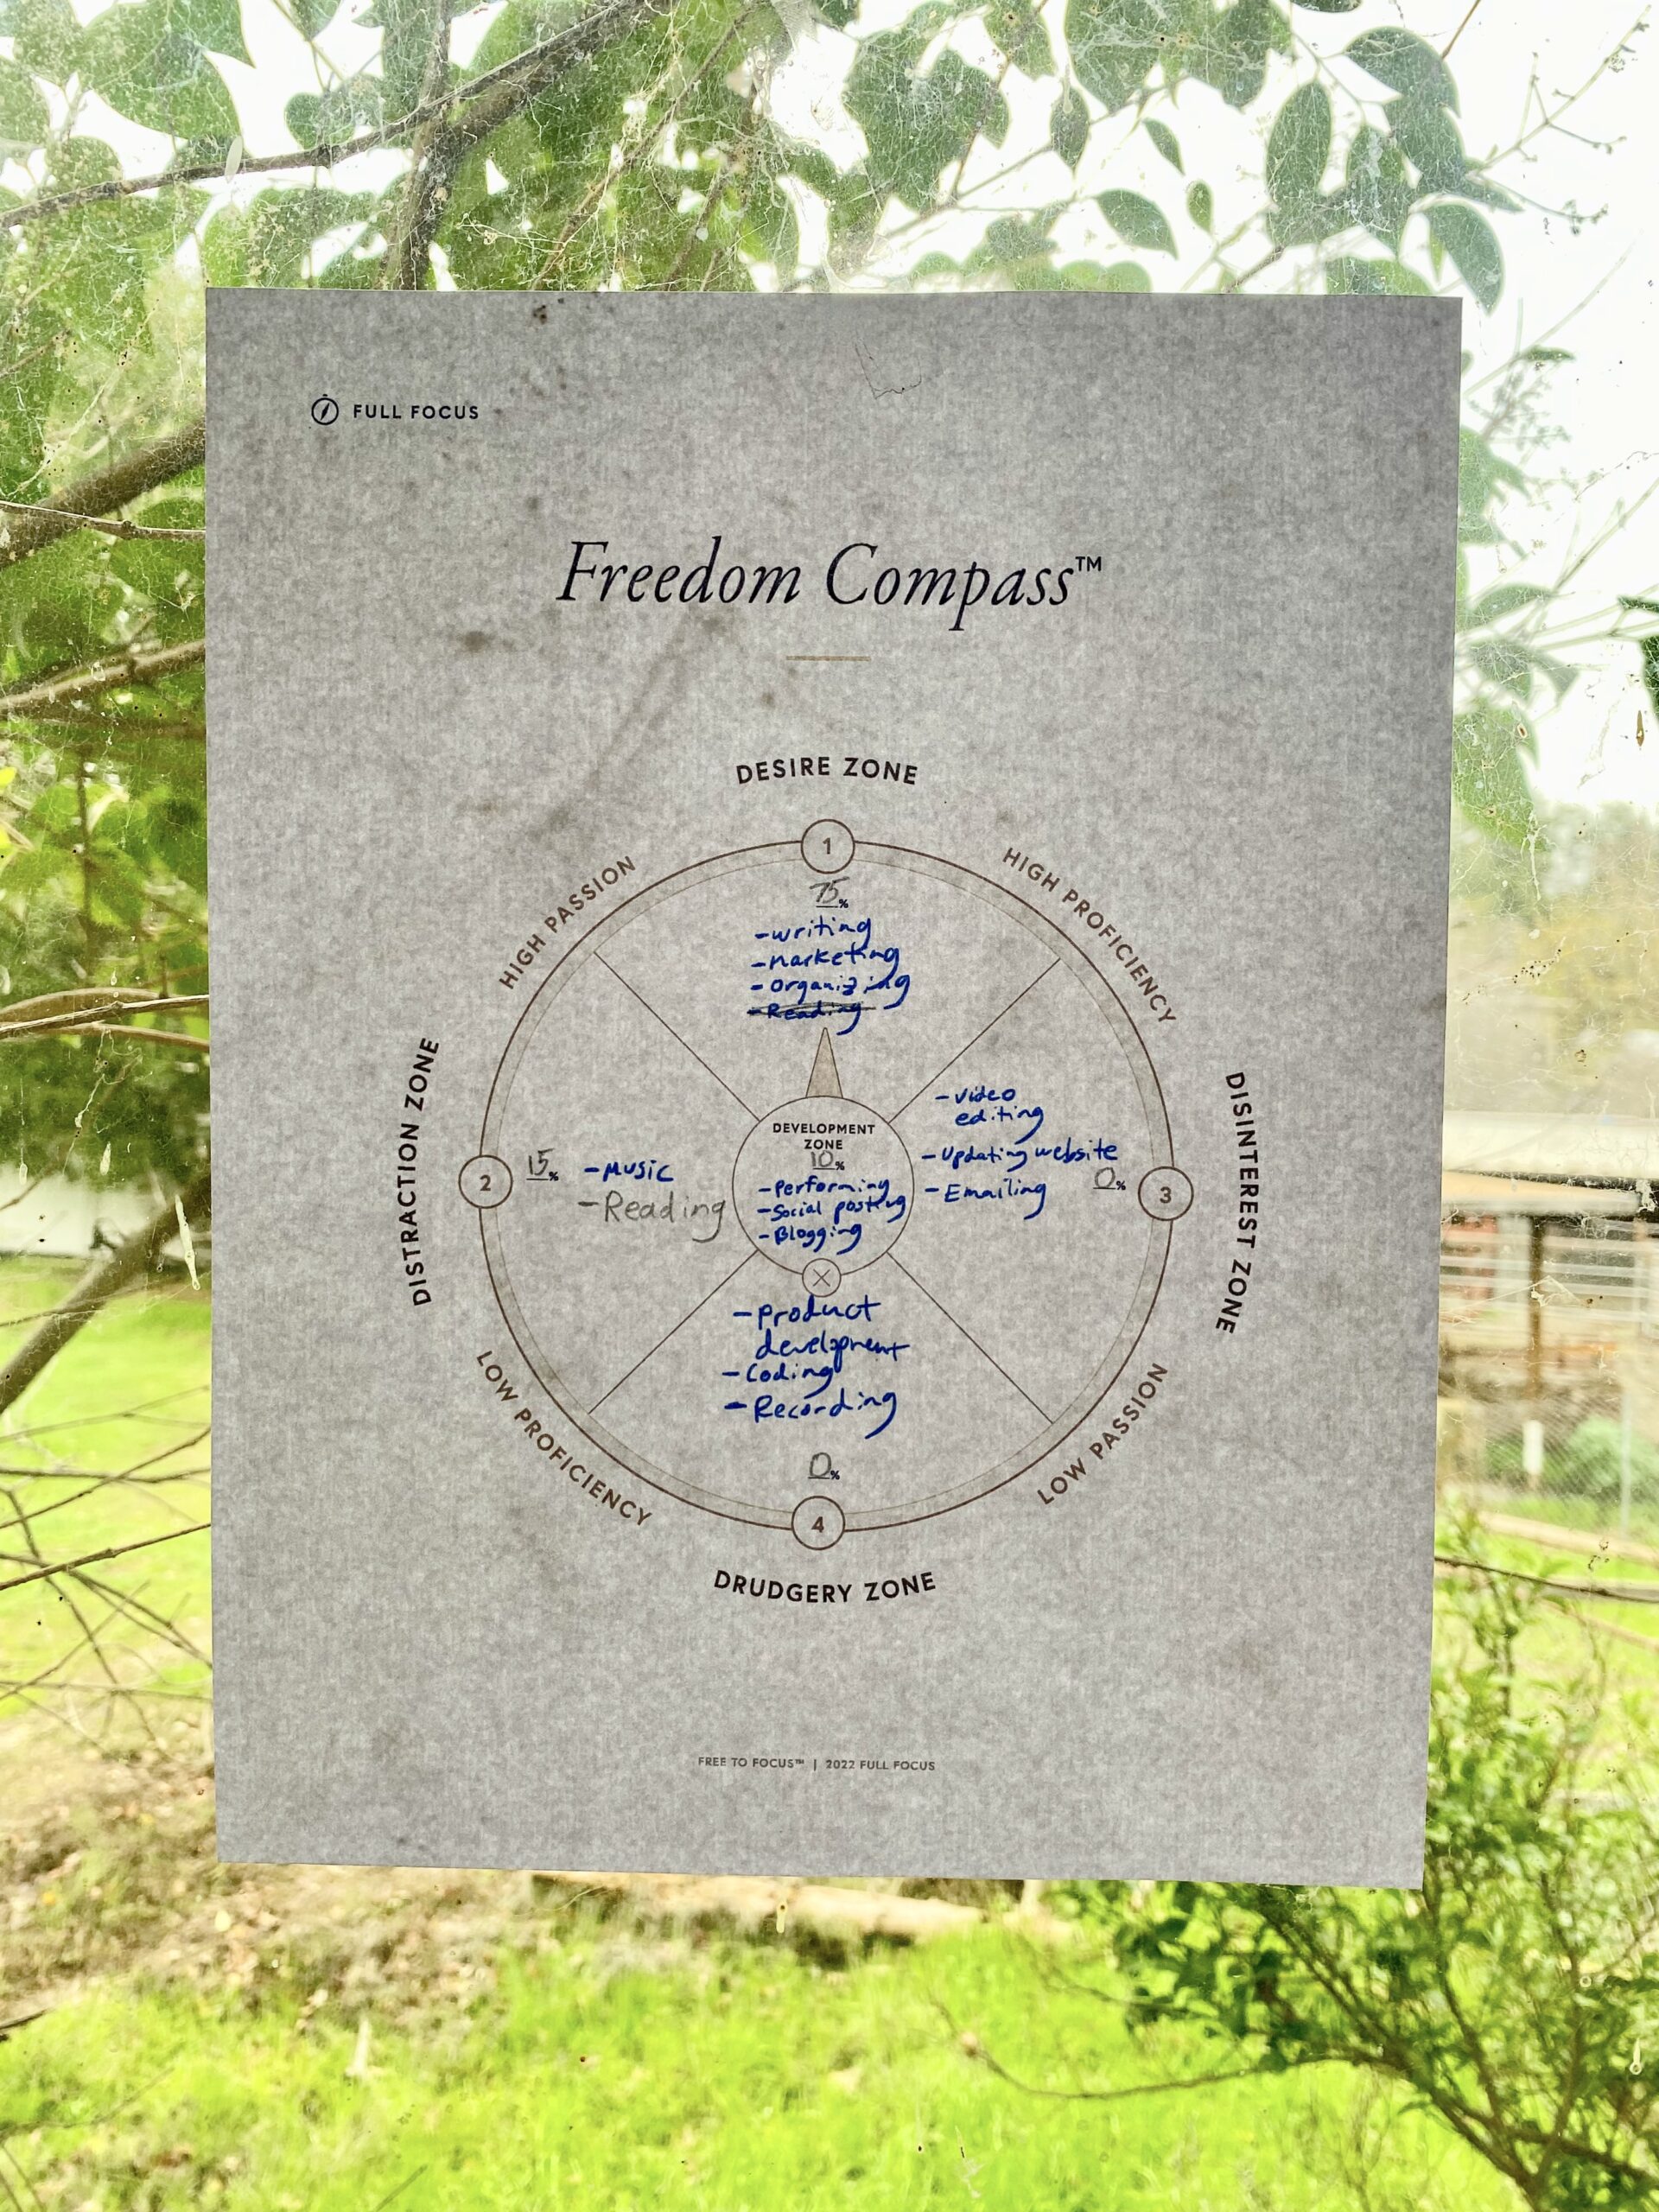 FULL FOCUS
Freedom Compass™
DESIRE ZONE
1
HIGH PASSION
HIGH PROFICIENCY
75%
-writing
-Marketing
-Organizing
-Reading
DISTRACTION ZONE
2
15%
-Music
-Reading
DEVELOPMENT
ZONE
10%
-Performing
-Social posting
-Blogging
-Video
editing
-Updating website
-Emailing
0%
3
DISINTEREST ZONE
-Product
development
-Coding
-Recording
0%
4
LOW PROFICIENCY
LOW PASSION
DRUDGERY ZONE
FREE TO FOCUS™ | 2022 FULL FOCUS